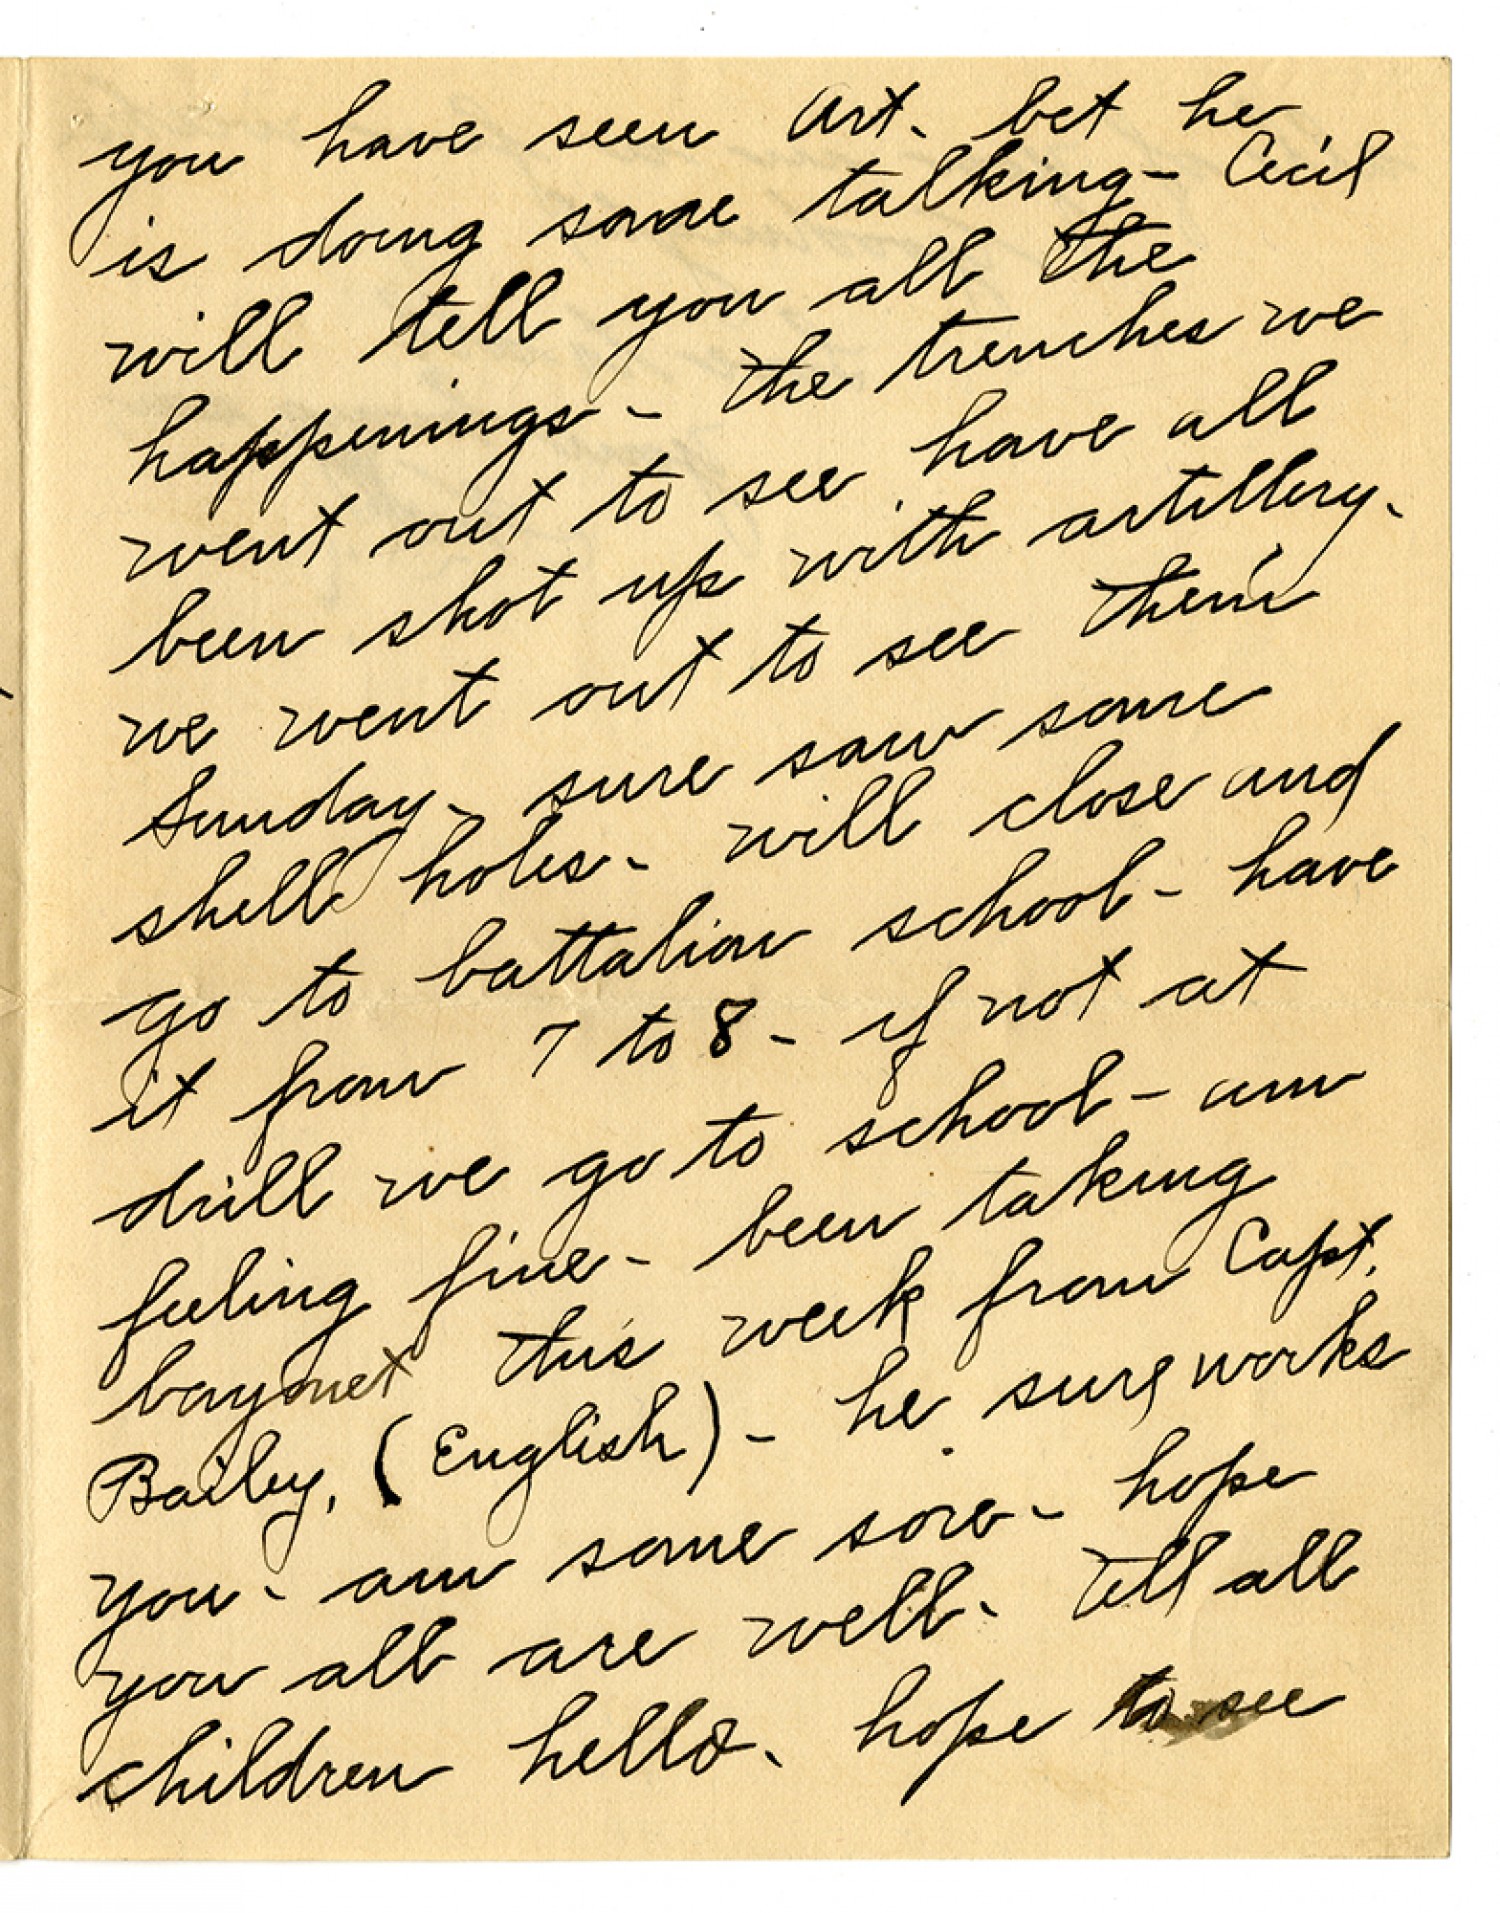 you have seen Art. bet he
is doing some talking - Cecil
will tell you all the
happenings - The trenches we
went out to see have all
been shot up with artillery.
we went out to see them
Sunday - sure saw some
shell holes - will close and
go to battalion school - have
it from 7 to 8 - if not at
drill we go to school - am
feeling fine - been taking
bayonet this week from Capt.
Bailey, (English) - he sure works
you - am some sore - hope
you all are well. Tell all
children hello. hope to see